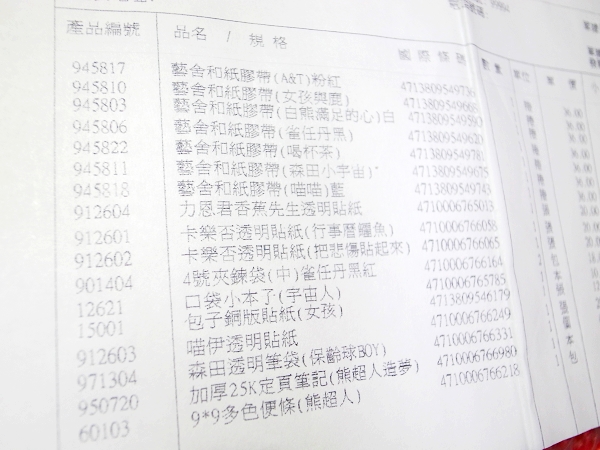 產品編號 品名 / 規格 國際條碼 數量 單位 單價
945817 藝舍和紙膠帶(A&T)粉紅 4713809549736
945810 藝舍和紙膠帶(女孩與鹿) 4713809549668
945803 藝舍和紙膠帶(白熊滿足的心)白
945806 藝舍和紙膠帶(雀任丹黑) 4713809549620
945822 藝舍和紙膠帶(喝杯茶) 4713809549781
945811 藝舍和紙膠帶(森田小宇宙) 4713809549675
945818 藝舍和紙膠帶(喵喵)藍 4713809549743
912604 力恩君香蕉先生透明貼紙 4710006765013
912601 卡樂否透明貼紙(行事曆鱷魚) 4710006766058
912602 卡樂否透明貼紙(把悲傷貼起來) 4710006766065
901404 4號夾鍊袋(中)雀任丹黑紅 4710006766164
12621 口袋小本子(宇宙人) 4710006765785
15001 包子銅版貼紙(女孩) 4713809546179
912603 喵伊透明貼紙 4710006766249
971304 森田透明筆袋(保齡球BOY) 4710006766331
950720 加厚25K定頁筆記(熊超人造夢) 4710006766980
60103 9*9多色便條(熊超人) 4710006766218